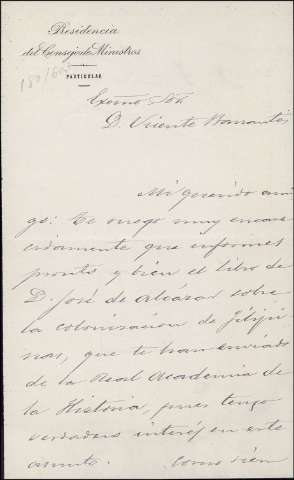 Presidencia
del Consejo de Ministros
PARTICULAR
Excmo Sor
D. Vicente Barrantes
Mi querido ami
go: Te ruego muy encare
cidamente que informes
pronto y bien el libro de
D. José de Alcázar sobre
la colonización de Filipi
nas, que te han enviado
de la Real Academia de
la Historia, pues tengo
verdadero interés en este
asunto. Como bien